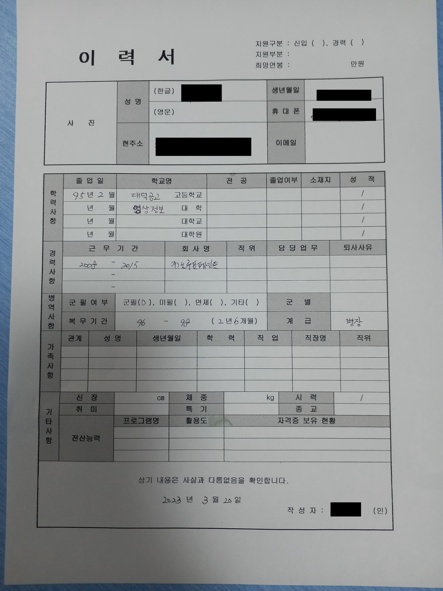 지원구분 : 신입 ( ), 경력 ( )
이 력 서
지원부분 :
희망연봉 : 만원
사 진
성 명
(한글)
생년월일
(영문)
휴 대 폰
현주소
이메일
학력사항
졸 업 일 학교명 전 공 졸업여부 소재지 성 적
95년 2월 대덕공고 고등학교 /
년 월 영상정보 대 학 /
년 월 대학교 /
년 월 대학원 /
경력사항
근 무 기 간 회 사 명 직위 담 당 업 무 퇴사사유
2008 - 2015
-
-
병역사항
군필여부 군필(○), 미필( ), 면제( ), 기타( ) 군 별
복무기간 96 - 98 ( 2년6개월) 계 급 병장
가족사항
관계 성 명 생년월일 학 력 직 업 직장명 직위
기타사항
신 장 cm 체 중 kg 시 력 /
취 미 특 기 종 교
전산능력
프로그램명 활용도 자격증 보유 현황
상기 내용은 사실과 다름없음을 확인합니다.
2023 년 3 월 20 일
작 성 자 : (인)